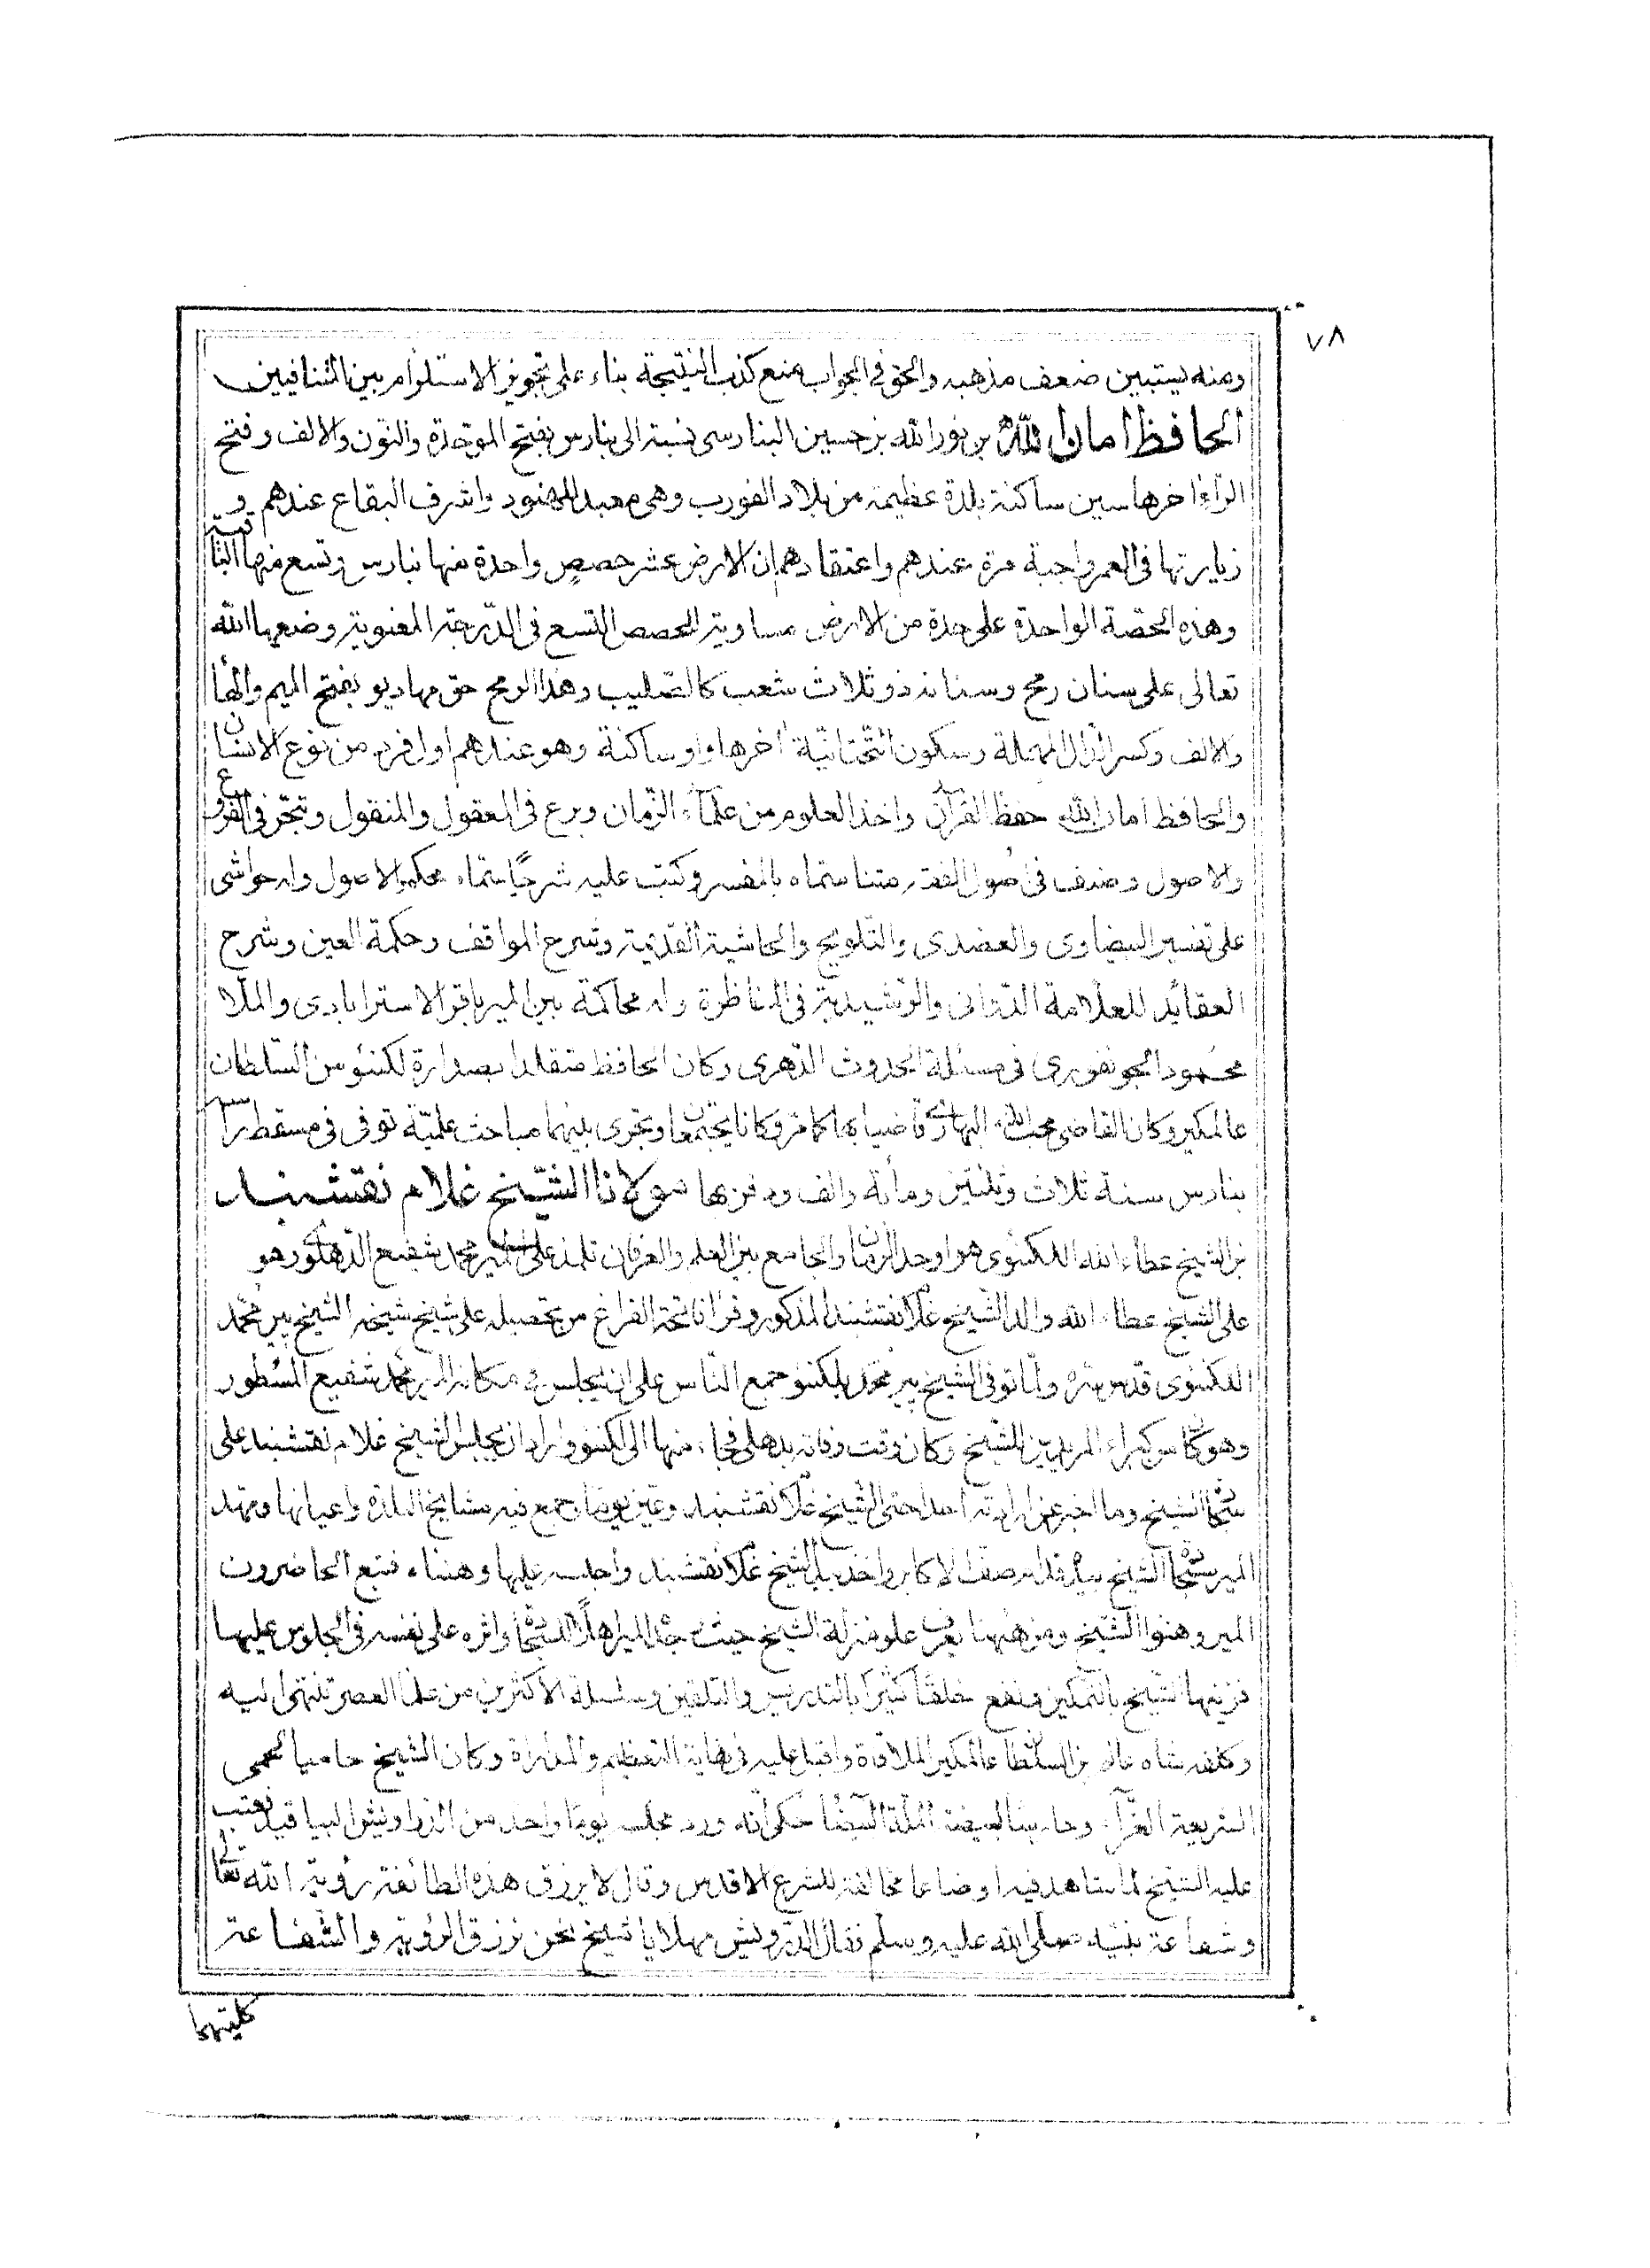 ٧٨
ومنه يستبين ضعف مذهبه والحق فى الجواب منع كذب النتيجة بناء على تجويز الاستلزام بين المتنافيين
الحافظ امان الله بن نور الله بن حسين البنارسى نسبة الى بنارس بفتح الموحدة والنون والالف وفتح
الراء اخرها سين ساكنة بلدة عظيمة من بلاد الفورب وهى معبد للهنود واشرف البقاع عندهم و
زيارتها فى العمر واجبة مرة عندهم واعتقادهم ان الارض عشر حصص واحدة منها بنارس وتسع منها البا قية
وهذه الحصّة الواحدة على حدة من الارض مساوية للحصص التسع فى الدّرجة المعنوية وضعها الله
تعالى على سنان رمح وسنانه ذو ثلاث شعب كالصّليب وهذا الرمح حق مهاديو بفتح الميم والهاء
والالف وكسر الدال المهملة وسكون التّحتانيّة اخرها واو ساكنة وهو عندهم اول فرد من نوع الانسان
والحافظ امان الله حفظ القرآن واخذ العلوم من علمآء الزّمان وبرع فى المعقول والمنقول وتبحّر فى الفروع
والاصول وصنف فى اصول الفقه متنا سمّاه بالمفسر وكتب عليه شرحًا سمّاه محكم الاصول وله حواشى
على تفسير البيضاوى والعضدى والتّلويح والحاشية القديمة وشرح المواقف وحكمة العين وشرح
العقائد للعلّامة الدّوانى والرّشيديّة فى المناظرة وله محاكمة بين المير باقر الاسترابادى والملّا
محمود الجونفورى فى مسئلة الحدوث الدّهرى وكان الحافظ متقلدا بصدارة لكنئو من السّلطان
عالمكير وكان القاضى محب الله البهارى قاضيا بها كما مر وكانا يجتمعان وتجرى بينهما مباحث علميّة توفى فى مسقط راسه
بنارس سنة ثلاث وثلثين ومأة والف ودفن بها مولانا الشّيخ غلام نقشبند
بن الشيخ عطاء الله اللكنوى هو اوحد الزمان والجامع بين العلم والعرفان تلمذ على المير محمد شفيع الدّهلوى وهو
على الشيخ عطاء الله والد الشّيخ غلام نقشبند المذكور وقرا فاتحة الفراغ من تحصيله على شيخ شيخه الشيخ پير محمّد
اللكنوى قدس سره ولما توفى الشيخ پير محمد بلكنئو جمع النّاس على ان يجلس فى مكانه المير محمد شفيع المسطور
وهو كان من كبراء المريدين للشيخ وكان وقت وفاته بدهلى فجاء منها الى لكنئو واراد ان يجلس الشيخ غلام نقشبند على
سجادة الشيخ وما اخبر عن ارادته احدا حتى الشّيخ غلام نقشبند وعين يوما جمع فيه مشايخ البلدة واعيانها ومهد
المير سجادة الشيخ بيده فقام من صف الاكابر واخذ بيد الشّيخ غلام نقشبند واجلسه عليها وهناه فتبع الحاضرون
المير وهنوا الشّيخ ومن ههنا يعرف علو منزلة الشّيخ حيث وجده المير اهلًا للسّجادة واثره على نفسه فى الجلوس عليها
فزينها الشيخ بالتمكين ونفع خلقًا كثيرًا بالتدريس والتلقين وسلسلة الاكثرين من علماء العصر تنتهى اليه
وكلفه شاه عالم بن السلطان عالمكير الملاقاة واقبل عليه فى نهاية التعظيم والمدارة وكان الشيخ حاميا لحمى
الشريعة الغرّاء وحارسًا لبيضة الملّة البيضاء حكى انّه ورد مجلسه يوما واحد من الدراويش البياقيد فعتب
عليه الشيخ لما شاهد فيه اوضاعا مخالفة للشرع الاقدس وقال لا يرزق هذه الطائفة رؤية الله تعالى
وشفاعة نبيّه صلى الله عليه وسلّم فقال الدّرويش مهلا يا شيخ نحن نرزق الرؤية والشّفاعة
كليتهما